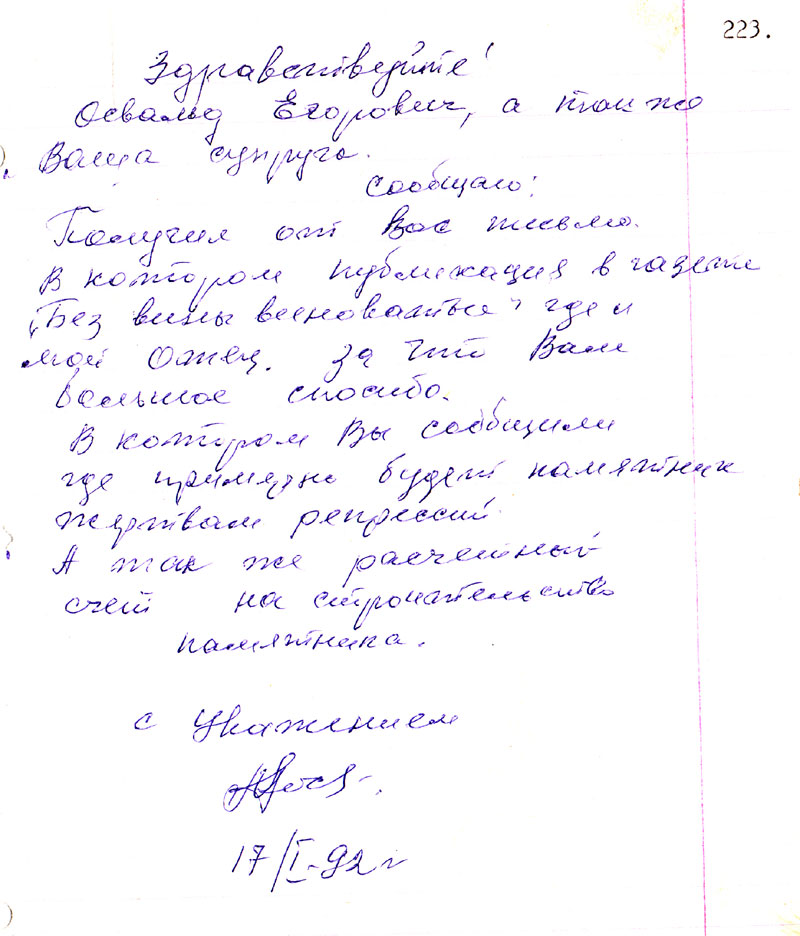 223.
Здравствуйте!
Освальд Егорович, а так же
Ваша супруга.
Сообщаю:
Получил от Вас письмо.
В котором публикация в газете
„Без вины виноватые" где и
мой Отец. За что Вам
большое спосибо.
В котором Вы сообщили
где примерно будет памятник
жертвам репрессий.
А так же расчетный
счет на строительство
памятника.
С Уважением
17/I-92 г